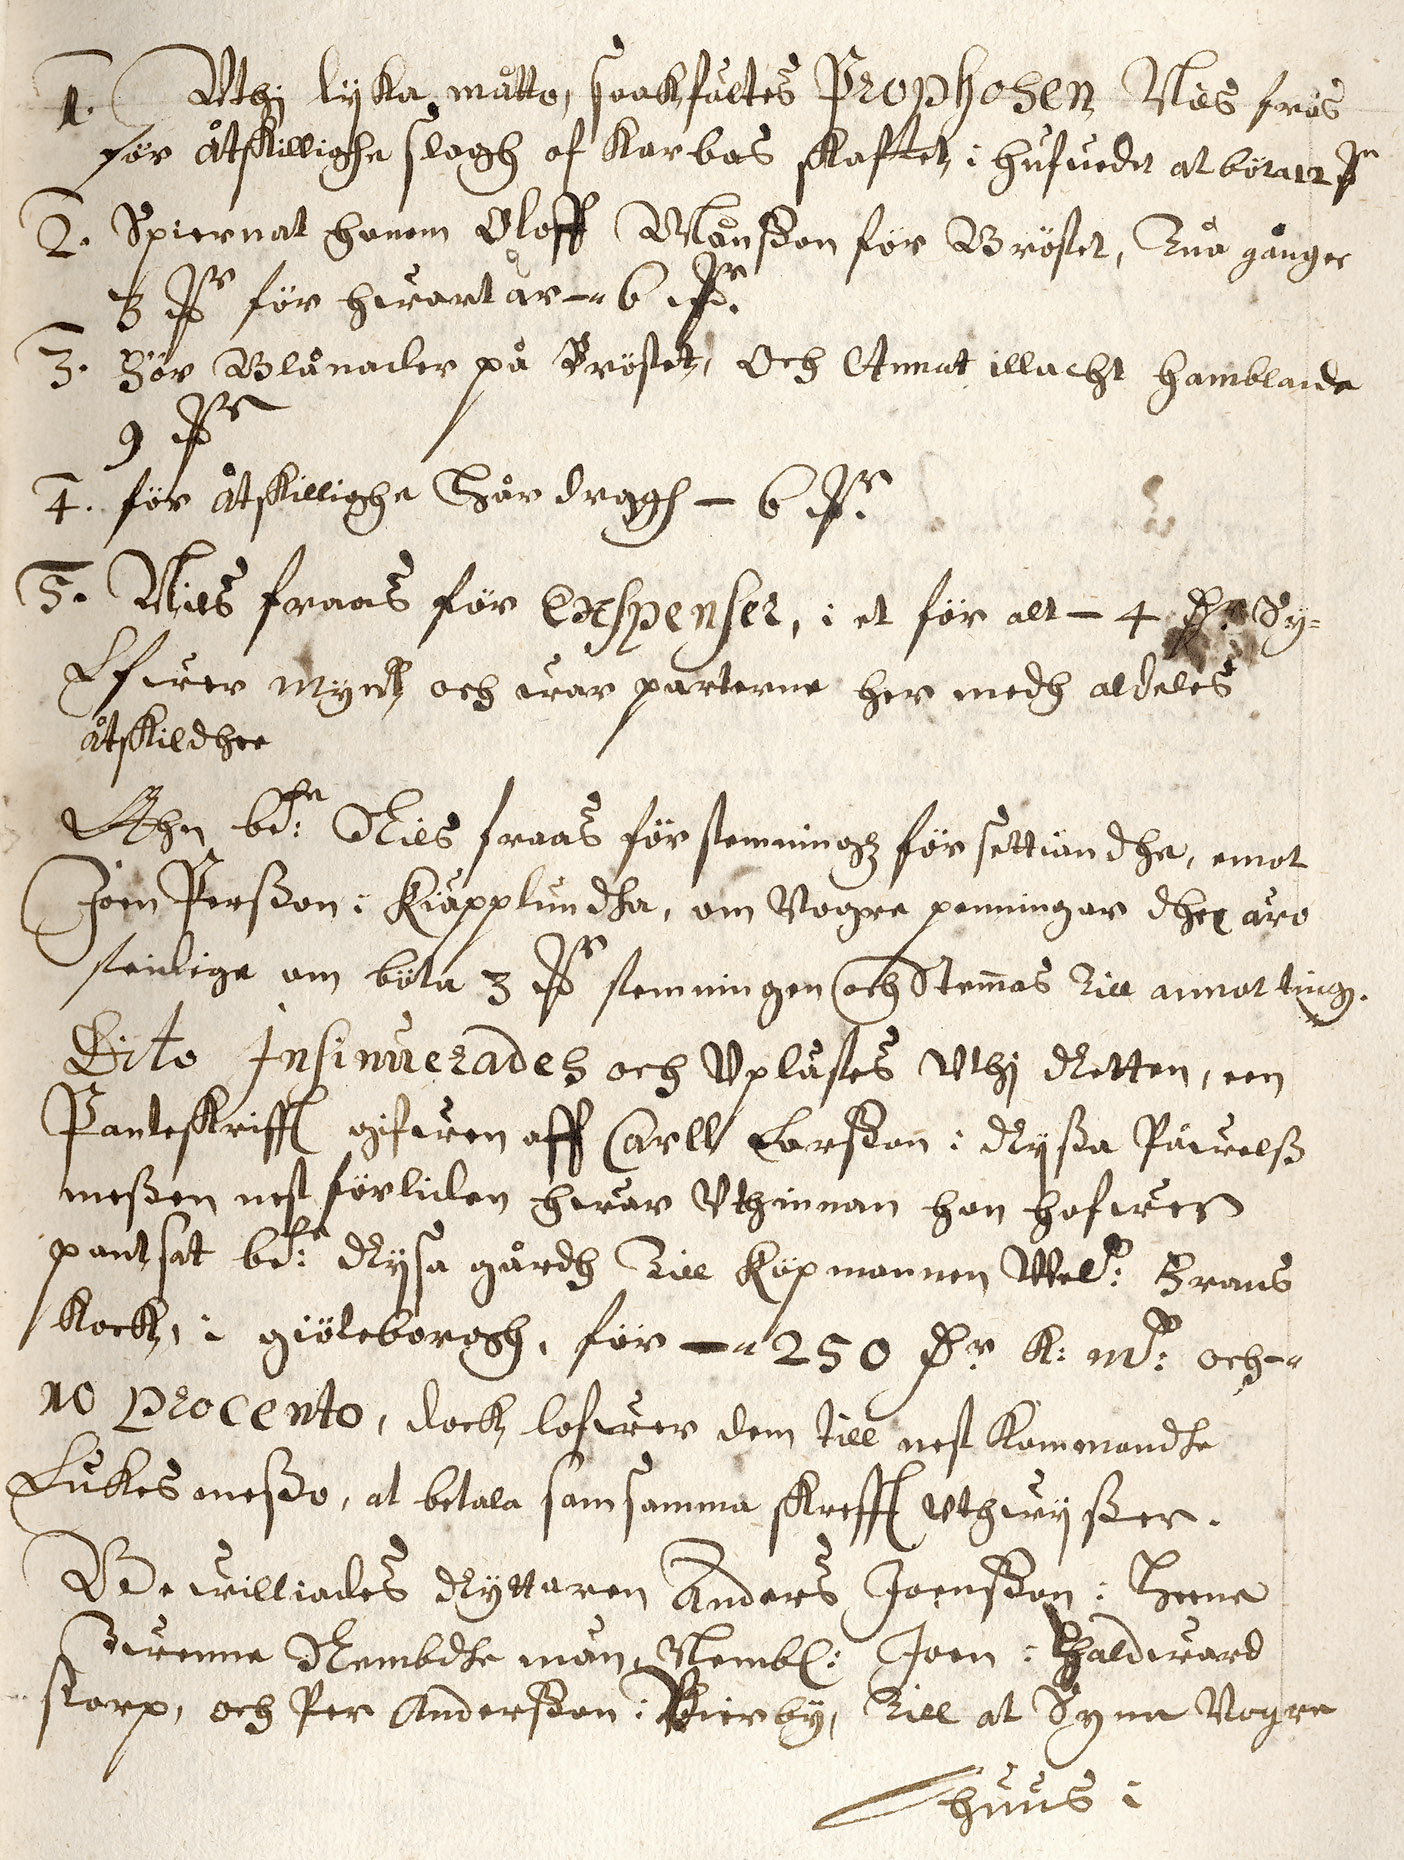 1. Uthj lyka måtto, saakfältes Prophosen Nils fraas
för åtskillighe slagh af Karbas skafftet, i hufvudet at böta 12 dr
2. Spiernat honem Oloff Månsson för Bröstet, Två gånger
3 dr för hwart är – 6 dr.
3. För Blånader på Bröstet, Och Annat illacht hamblande
9 dr
4. för åtskillighe Håår dragh – 6 dr.
5. Nils fraas för Expenser, i et för alt – 4 dr Sy=
lfwer mynt, och war parterne her medh aldeles
åtskildhee
Ähn bde: Nils fraas för stemningz försettiandhe, emot
Joen Persson i Kiäpplundha, om Någre penningar dhe äro
stridige om böta 3 dr stemningen och stemas Till annat ting.
Dito Insinuerades och Uplästes Uthj Retten, een
Panteskrifft gifwen aff Carll Larsson i Ryssa Påwelss
messen nest förliden hwar Uthinnan han hafwer
pantsat bde: Rysa gårdh Till Köpmannen Wel: Frans
Kock, i giöteborgh, för – 250 dr K: mt: och –
10 Procento, dock lofwer dem till nest Kommandhe
Lukes messo, at betala som samma skrefft Uthwysser.
Bewilliades Ryttaren Anders Joensson i Heene
Twenne Nembdhe män, Nembl: Joen i Haldward
storp, och Per Andersson i Bierby, Till at Syna Någre
huus i